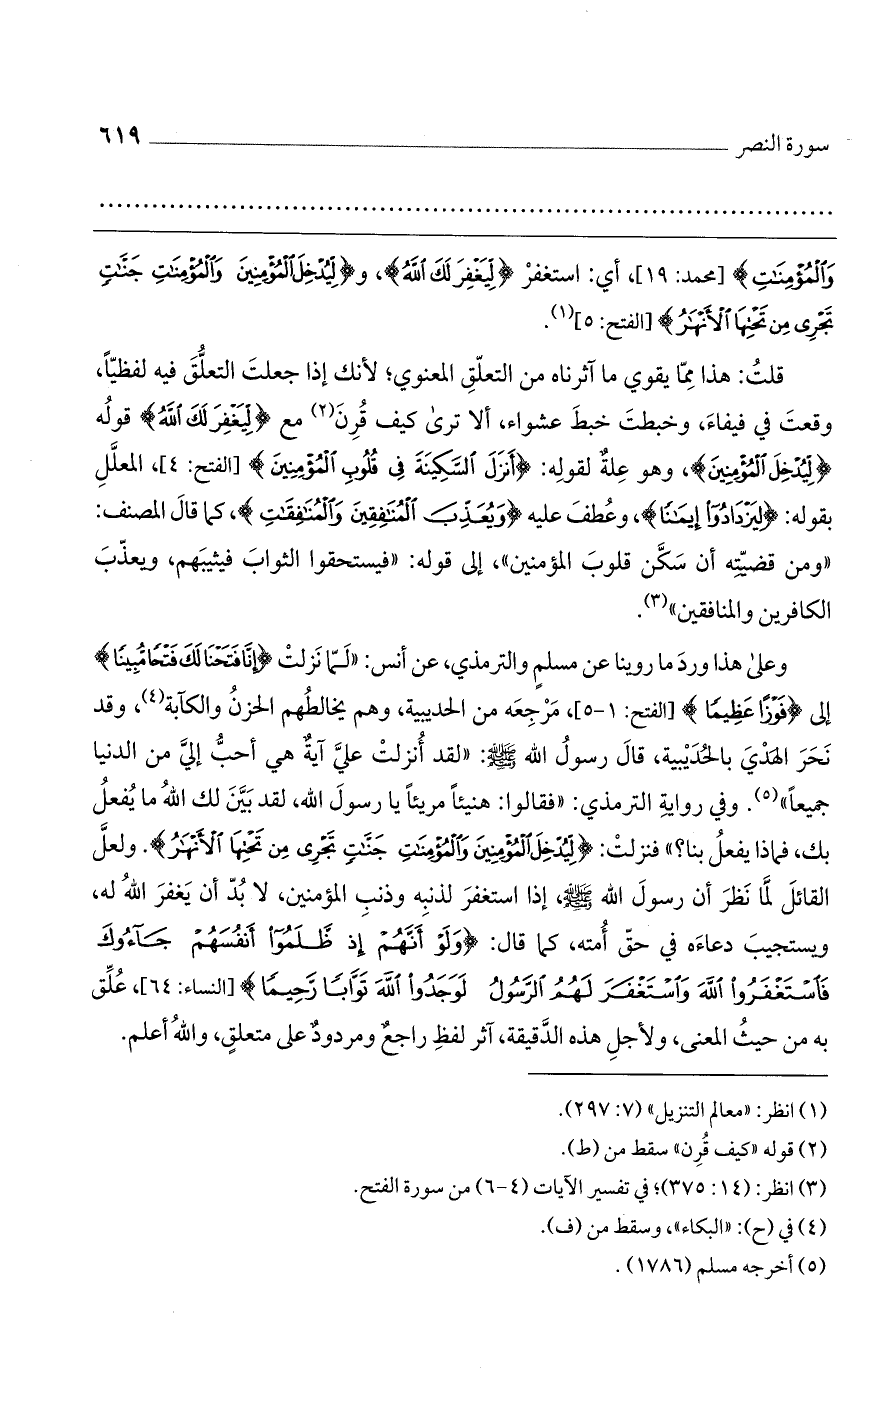 سورة النصر ــــــــــــــــــــــــــــــــــــــــ ٦١٩
................................................................................
وَٱلْمُؤْمِنَٰتِ﴾ [محمد: ١٩]، أي: استغفرْ ﴿لِيَغْفِرَ لَكَ ٱللَّهُ﴾، و﴿لِيُدْخِلَ ٱلْمُؤْمِنِينَ وَٱلْمُؤْمِنَٰتِ جَنَّٰتٍ
تَجْرِى مِن تَحْتِهَا ٱلْأَنْهَٰرُ﴾ [الفتح: ٥](١).
قلتُ: هذا مِمّا يقوي ما آثرناه من التعلّقِ المعنوي؛ لأنك إذا جعلتَ التعلُّقَ فيه لفظيّاً،
وقعتَ في فيفاءَ، وخبطتَ خبطَ عشواء، ألا ترىٰ كيف قُرِنَ(٢) مع ﴿لِيَغْفِرَ لَكَ ٱللَّهُ﴾ قولُه
﴿لِيُدْخِلَ ٱلْمُؤْمِنِينَ﴾، وهو عِلةٌ لقولِه: ﴿أَنزَلَ ٱلسَّكِينَةَ فِى قُلُوبِ ٱلْمُؤْمِنِينَ﴾ [الفتح: ٤]، المعلَّلِ
بقوله: ﴿لِيَزْدَادُوٓا۟ إِيمَٰنًا﴾، وعُطفَ عليه ﴿وَيُعَذِّبَ ٱلْمُنَٰفِقِينَ وَٱلْمُنَٰفِقَٰتِ﴾، كما قالَ المصنف:
«ومن قضيّتِه أن سَكَّن قلوبَ المؤمنين»، إلى قوله: «فيستحقوا الثوابَ فيثيبَهم، ويعذّبَ
الكافرين والمنافقين»(٣).
وعلىٰ هذا وردَ ما روينا عن مسلمٍ والترمذي، عن أنس: «لَـمّا نَزلتْ ﴿إِنَّا فَتَحْنَا لَكَ فَتْحًا مُّبِينًا﴾
إلى ﴿فَوْزًا عَظِيمًا﴾ [الفتح: ١-٥]، مَرْجِعَه من الحديبية، وهم يخالطُهم الحزنُ والكآبة(٤)، وقد
نَحَرَ الهَدْيَ بالحُدَيْبِية، قالَ رسولُ الله ﷺ: «لقد أُنزلتْ عليَّ آيةٌ هي أحبُّ إليَّ من الدنيا
جميعاً»(٥). وفي روايةِ الترمذي: «فقالوا: هنيئاً مريئاً يا رسولَ الله، لقد بَيَّنَ لك اللهُ ما يُفعلُ
بك، فماذا يفعلُ بنا؟» فنزلتْ: ﴿لِيُدْخِلَ ٱلْمُؤْمِنِينَ وَٱلْمُؤْمِنَٰتِ جَنَّٰتٍ تَجْرِى مِن تَحْتِهَا ٱلْأَنْهَٰرُ﴾. ولعلَّ
القائلَ لمَّا نَظرَ أن رسولَ الله ﷺ، إذا استغفرَ لذنبِه وذنبِ المؤمنين، لا بُدّ أن يَغفرَ اللهُ له،
ويستجيبَ دعاءَه في حقّ أُمته، كما قال: ﴿وَلَوْ أَنَّهُمْ إِذ ظَّلَمُوٓا۟ أَنفُسَهُمْ جَآءُوكَ
فَٱسْتَغْفَرُوا۟ ٱللَّهَ وَٱسْتَغْفَرَ لَهُمُ ٱلرَّسُولُ لَوَجَدُوا۟ ٱللَّهَ تَوَّابًا رَّحِيمًا﴾ [النساء: ٦٤]، عُلِّق
به من حيثُ المعنى، ولأجلِ هذه الدَّقيقة، آثر لفظِ راجعٌ ومردودٌ على متعلقٍ، واللهُ أعلم.
(١) انظر: «معالم التنزيل» (٧: ٢٩٧).
(٢) قوله «كيف قُرِن» سقط من (ط).
(٣) انظر: (١٤: ٣٧٥)؛ في تفسير الآيات (٤-٦) من سورة الفتح.
(٤) في (ح): «البكاء»، وسقط من (ف).
(٥) أخرجه مسلم (١٧٨٦).